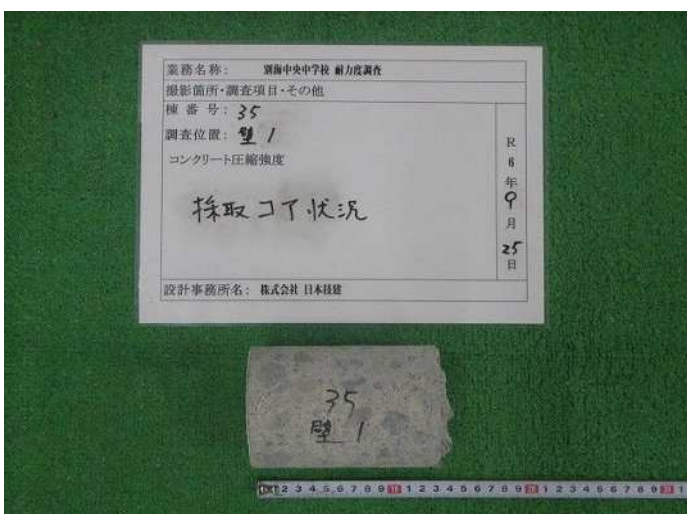 業務名称: 別海中央中学校 耐力度調査
撮影箇所・調査項目・その他
棟番号: 35
調査位置: 壁 1
コンクリート圧縮強度
採取コア状況
R
6
年
9
月
25
日
設計事務所名: 株式会社 日本技建
35
壁 1
2 3 4 5 6 7 8 9 10 1 2 3 4 5 6 7 8 9 20 1 2 3 4 5 6 7 8 9 30 1